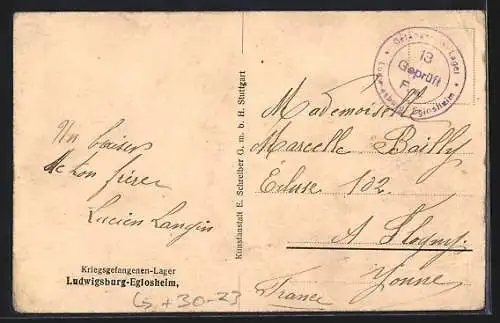 Un baiser
de ton frère
Lucien Langin
Kriegsgefangenen-Lager
Ludwigsburg-Eglosheim,
+30-23
Kunstanstalt E. Schreiber G. m. b. H. Stuttgart
13
Geprüft
F
Lager
Eglosheim
Mademoiselle
Marcelle Bailly
Ecluse 102
A Flogny
Yonne
France